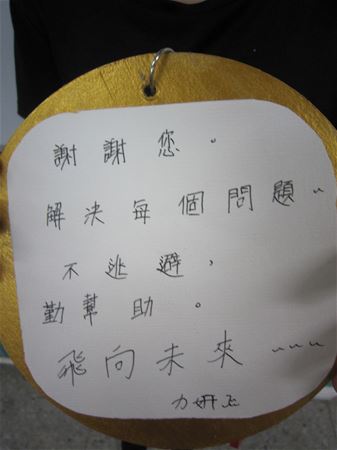 謝謝您。
解決每個問題~
不逃避，
勤幫助。
飛向未來~~~